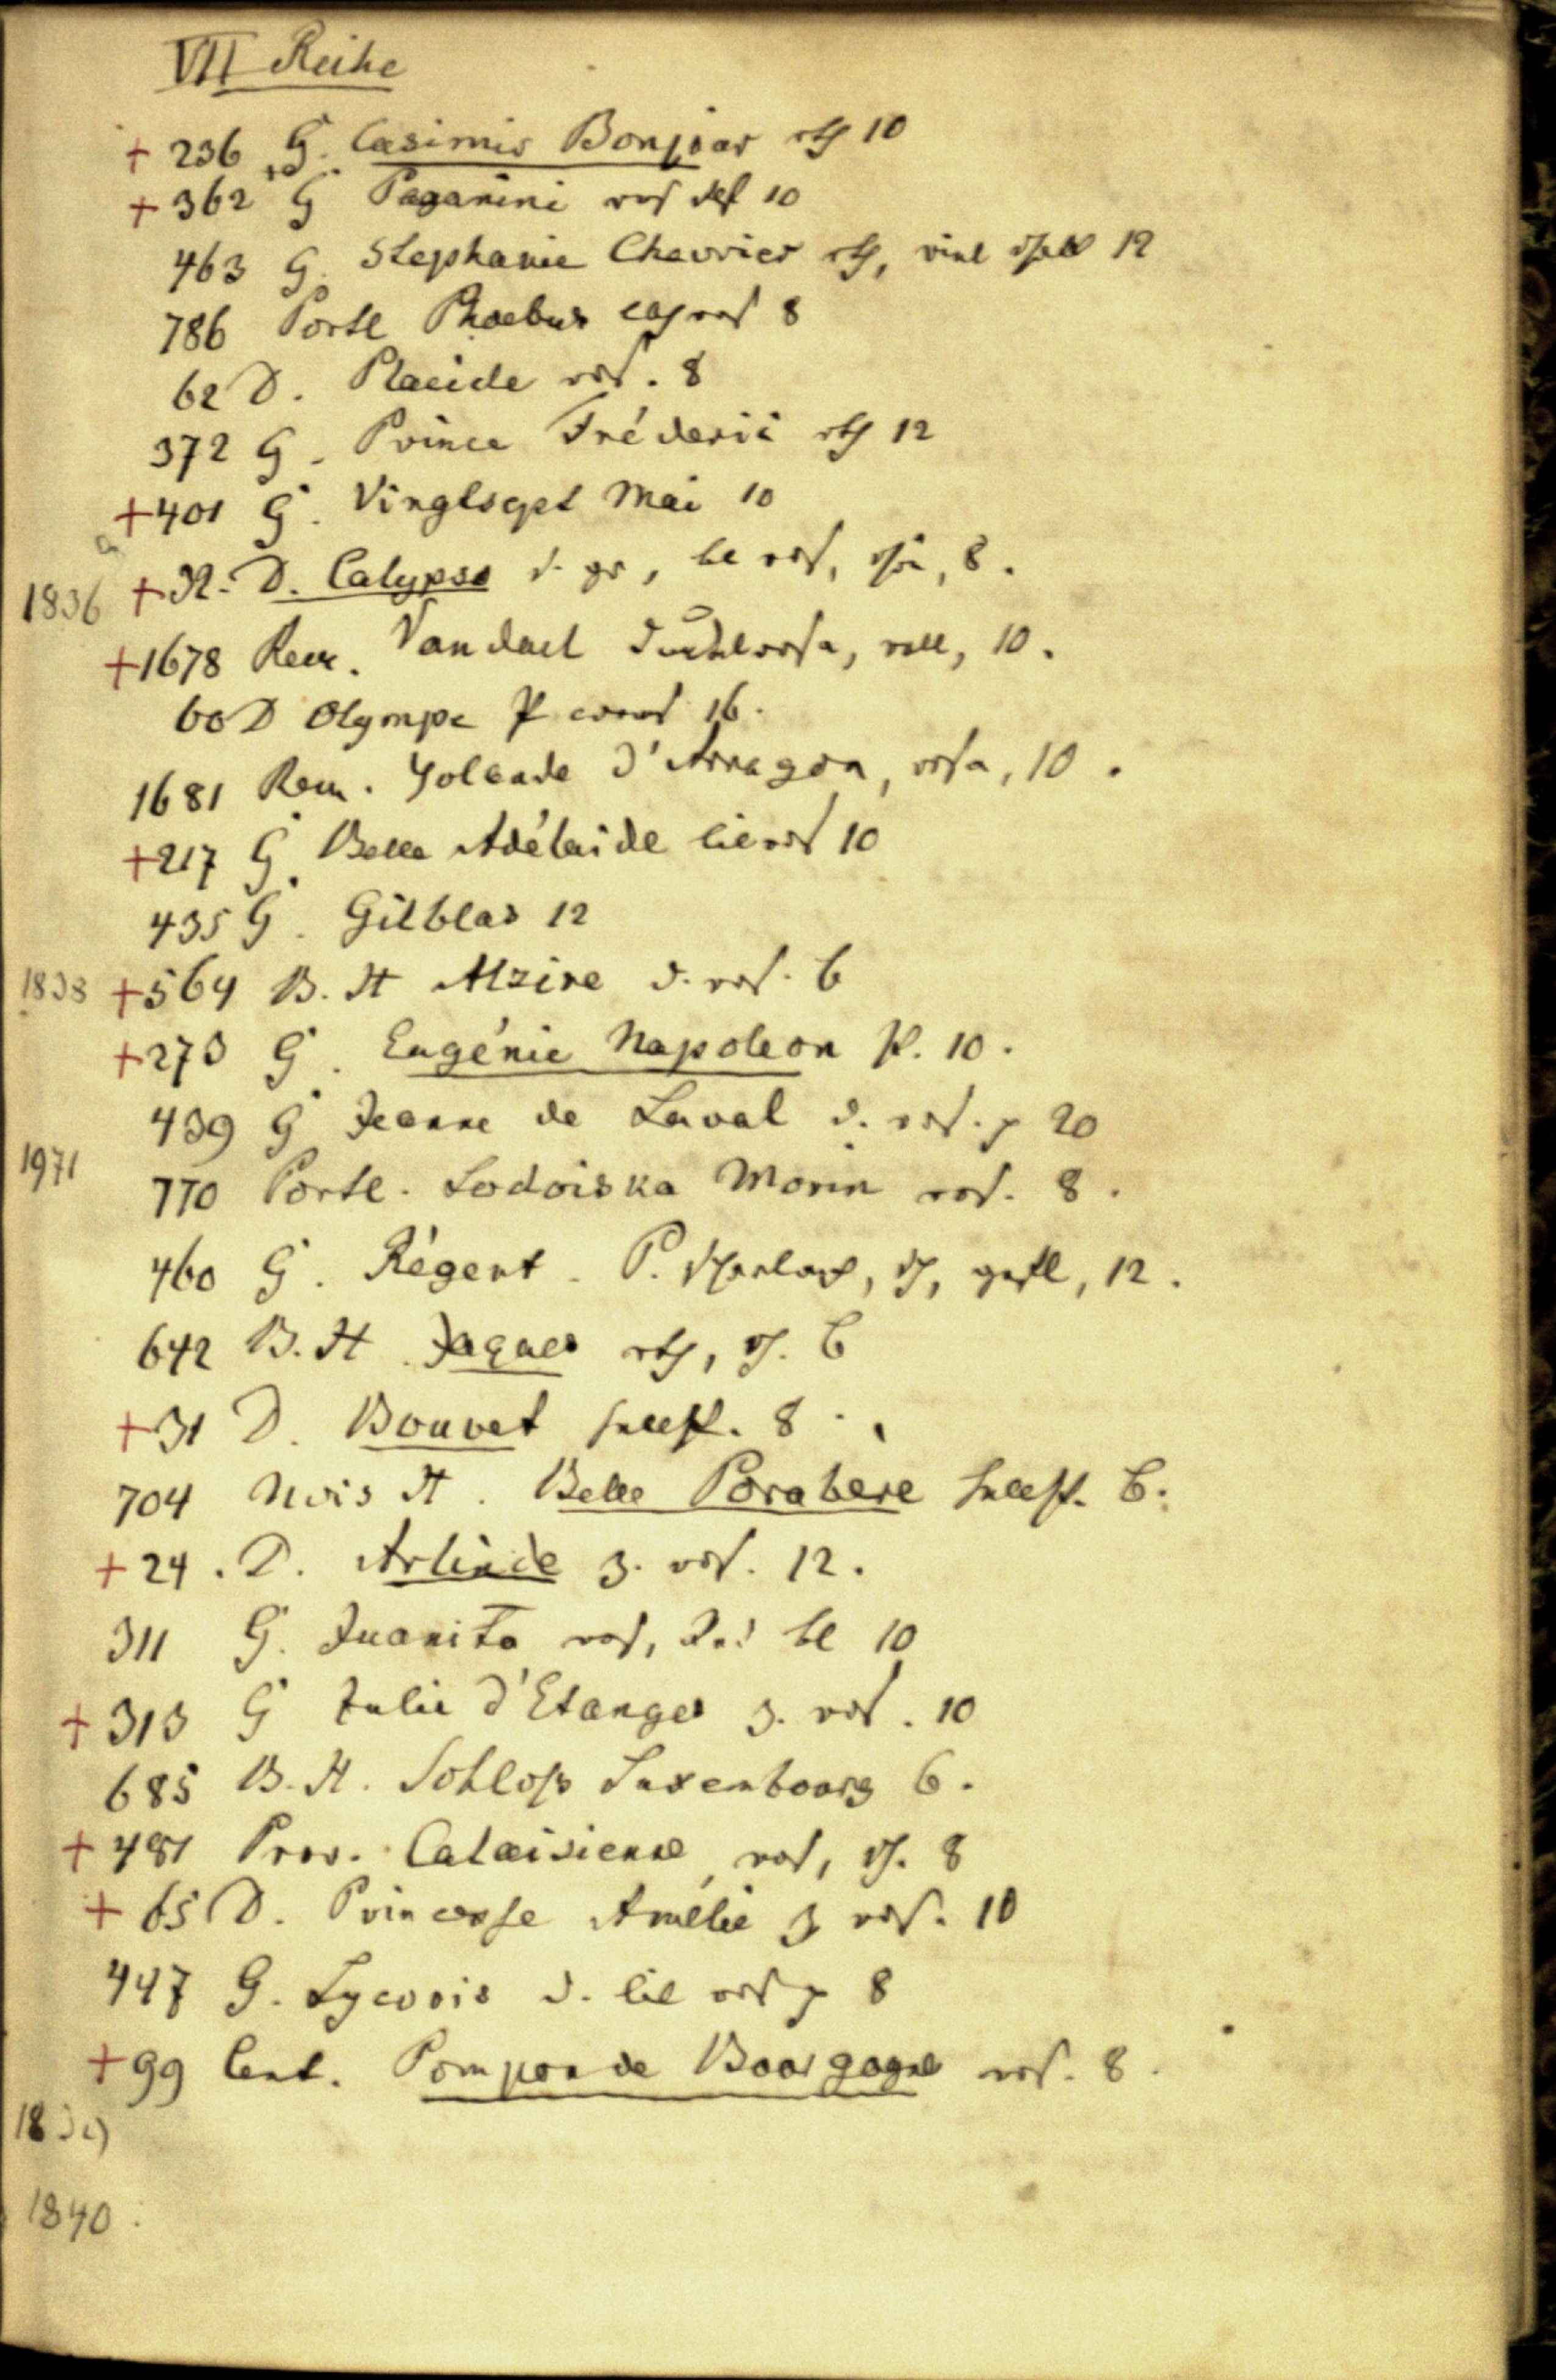 VII Reihe
+ 236 G. Casimir Bonjour rth 10
+ 362 G Paganini ros 10
463 G. Stephanie Chevrier rth, viol 12
786 Portl Phoebus ros 8
62 D. Placide ros. 8
372 G. Prince Fréderic rth 12
+ 401 G. Vingtsept Mai 10
1836 + 32. D. Calypso d. gr, bl ros, 8.
+ 1678 Rem. Vandael dunkelrosa, voll, 10.
60 D Olympe P 16.
1681 Rem. Yolande d'Arragon, rosa, 10.
+ 217 G. Belle Adélaide lil ros 10
435 G. Gilblas 12
1838 + 564 B. H Alzire d. ros. 6
+ 273 G. Eugénie Napoleon P. 10.
439 G Jeanne de Laval d. ros. p 20
1971
770 Portl. Lodoiska Morin ros. 8.
460 G. Régent. P. scharlach, gefl, 12.
642 B. H. Jaques rth, 6
+ 31 D. Bouvet hellfl. 8.
704 Nois H. Belle Parabere hellfl. 6.
+ 24. D. Arlinde z. ros. 12.
311 G. Juanita ros, bl 10
+ 313 G Julie d'Etanges z. ros. 10
685 B. H. Schloss Luxembourg 6.
+ 481 Prov. Calaisienne ros, 8
+ 65 D. Princesse Amélie z ros. 10
447 G. Lycoris d. lil ros p 8
+ 99 Cent. Pompon de Bourgogne ros. 8.
1839
1840.